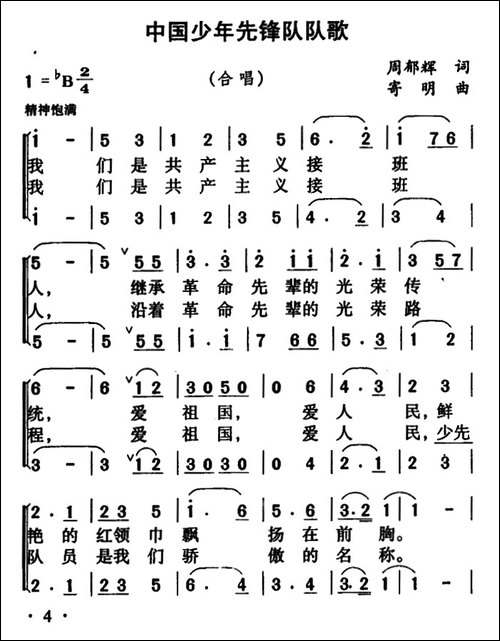 中国少年先锋队队歌
1 = ♭B 2/4
(合唱)
周郁辉 词
寄 明 曲
精神饱满
i - | 5 3 | 1 2 | 3 5 | 6. 2 | i 76
我 们是共产主义接 班
我 们是共产主义接 班
i - | 5 3 | 1 2 | 3 5 | 4. 2 | 3 4
5 - | 5 ∨ 55 | 3. 3 | 2 ii | 2. i | 3 57
人, 继承革命先辈的光荣传
人, 沿着革命先辈的光荣路
5 - | 5 ∨ 55 | i. i | 7 66 | 5. 3 | 1 2
6 - | 6 ∨ 12 | 3050 | 0 6 | 4. 3 | 2 3
统, 爱祖国, 爱人民,鲜
程, 爱祖国, 爱人民,少先
3 - | 3 ∨ 12 | 3030 | 0 4 | 2. 1 | 2 3
2. 1 | 23 5 | i. 6 | 5. 6 | 3. 2 1 | 1 -
艳的红领巾飘 扬在前胸。
队员是我们骄 傲的名称。
2. 1 | 23 5 | 6. 4 | 3. 4 | 3. 2 1 | 1 -
· 4 ·